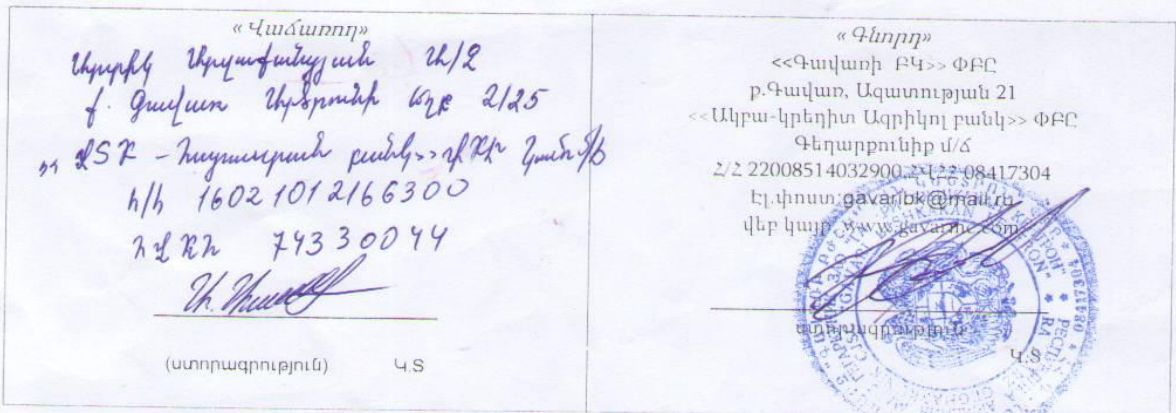 « Վաճառող»
Արտրիկ Ա/Ձ
ք. Գավառ Արծրունի 2/25
ՎՏԲ - Հայաստան բանկ>> ՓԲԸ
հ/հ 16021012166300
ՀՎՀՀ 74330044
(ստորագրություն) Կ.Տ
« Գնորդ»
<<Գավառի ԲԿ>> ՓԲԸ
ք.Գավառ, Ազատության 21
<<Ակբա-կրեդիտ Ագրիկոլ բանկ>> ՓԲԸ
Գեղարքունիք մ/ճ
Հ/Հ 22008514032900 ՀՎՀՀ 08417304
Էլ.փոստ: gavaribk@mail.ru
վեբ կայր: www.gavarmc.com
ստորագրություն
Կ.Տ